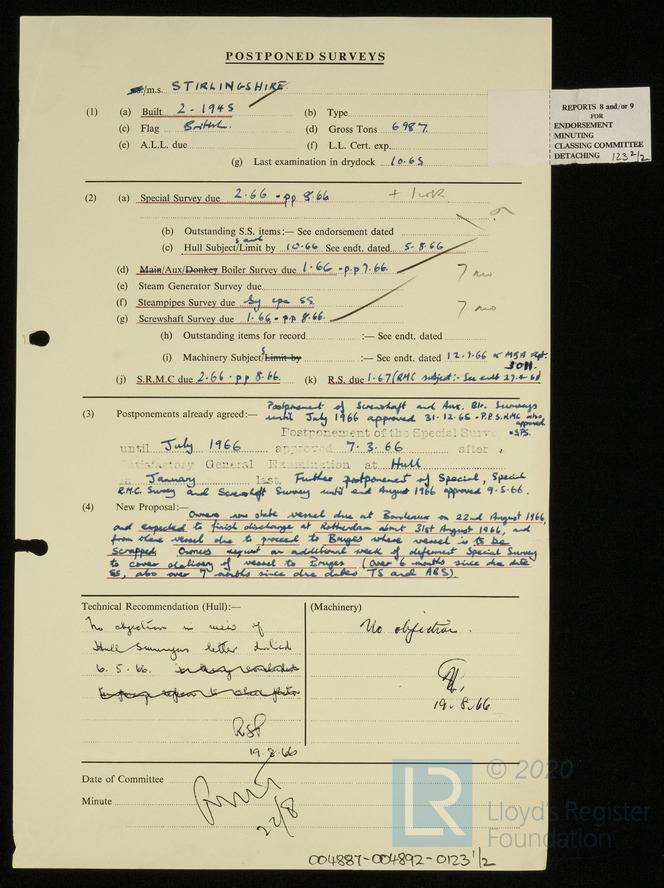 POSTPONED SURVEYS
s.s./m.s. STIRLINGSHIRE
REPORTS 8 and/or 9
FOR
ENDORSEMENT
MINUTING
CLASSING COMMITTEE
DETACHING 123 2/2
(1) (a) Built 2-1945 (b) Type
(c) Flag British. (d) Gross Tons 6987
(e) A.L.L. due (f) L.L. Cert. exp.
(g) Last examination in drydock 10.65
(2) (a) Special Survey due 2.66 - pp 8.66
(b) Outstanding S.S. items:— See endorsement dated
(c) Hull Subject/Limit by 10.66 See endt. dated 5-8.66
(d) Main/Aux/Donkey Boiler Survey due 1.66 - p.p 7.66. 7 mo
(e) Steam Generator Survey due
(f) Steampipes Survey due by cpn SS. 7 mo
(g) Screwshaft Survey due 1.66 - pp 8.66.
(h) Outstanding items for record :— See endt. dated
(i) Machinery Subject/Limit by :— See endt. dated 12.7.66 & MSA Rpt.
(j) S.R.M.C due 2.66 - pp 8.66. (k) R.S. due 1.67 (RMC subject:- See endt 27.4.61
(3) Postponements already agreed:— Postponement of Screwshaft and Aux. Blr. Surveys
until July 1966 approved 31-12-65 - P.P. S.RMC also approved
Postponement of the Special Survey
until July 1966 approved 7.3.66 after
Satisfactory General Examination at Hull
in January last. Further postponement of Special, Special
R.M.C. Survey and Screwshaft Survey until end August 1966 approved 9.5.66.
(4) New Proposal:— Owners now state vessel due at Bordeaux on 22nd August 1966,
and expected to finish discharge at Rotterdam about 31st August 1966, and
from there vessel due to proceed to Bruges where vessel is to be
scrapped. Owners request an additional week of deferment Special Survey
to cover delivery of vessel to Bruges (over 6 months since due date
SS, also over 7 months since due dates TS and ABS).
Technical Recommendation (Hull):— (Machinery)
No objection in view of
Hull Surveyors letter dated
6.5.66.
No objection.
19.8.66
RSP
19.8.66
Date of Committee
Minute
22/8
LR
© 2020
Lloyd's Register
Foundation
004887-004892-0123 1/2